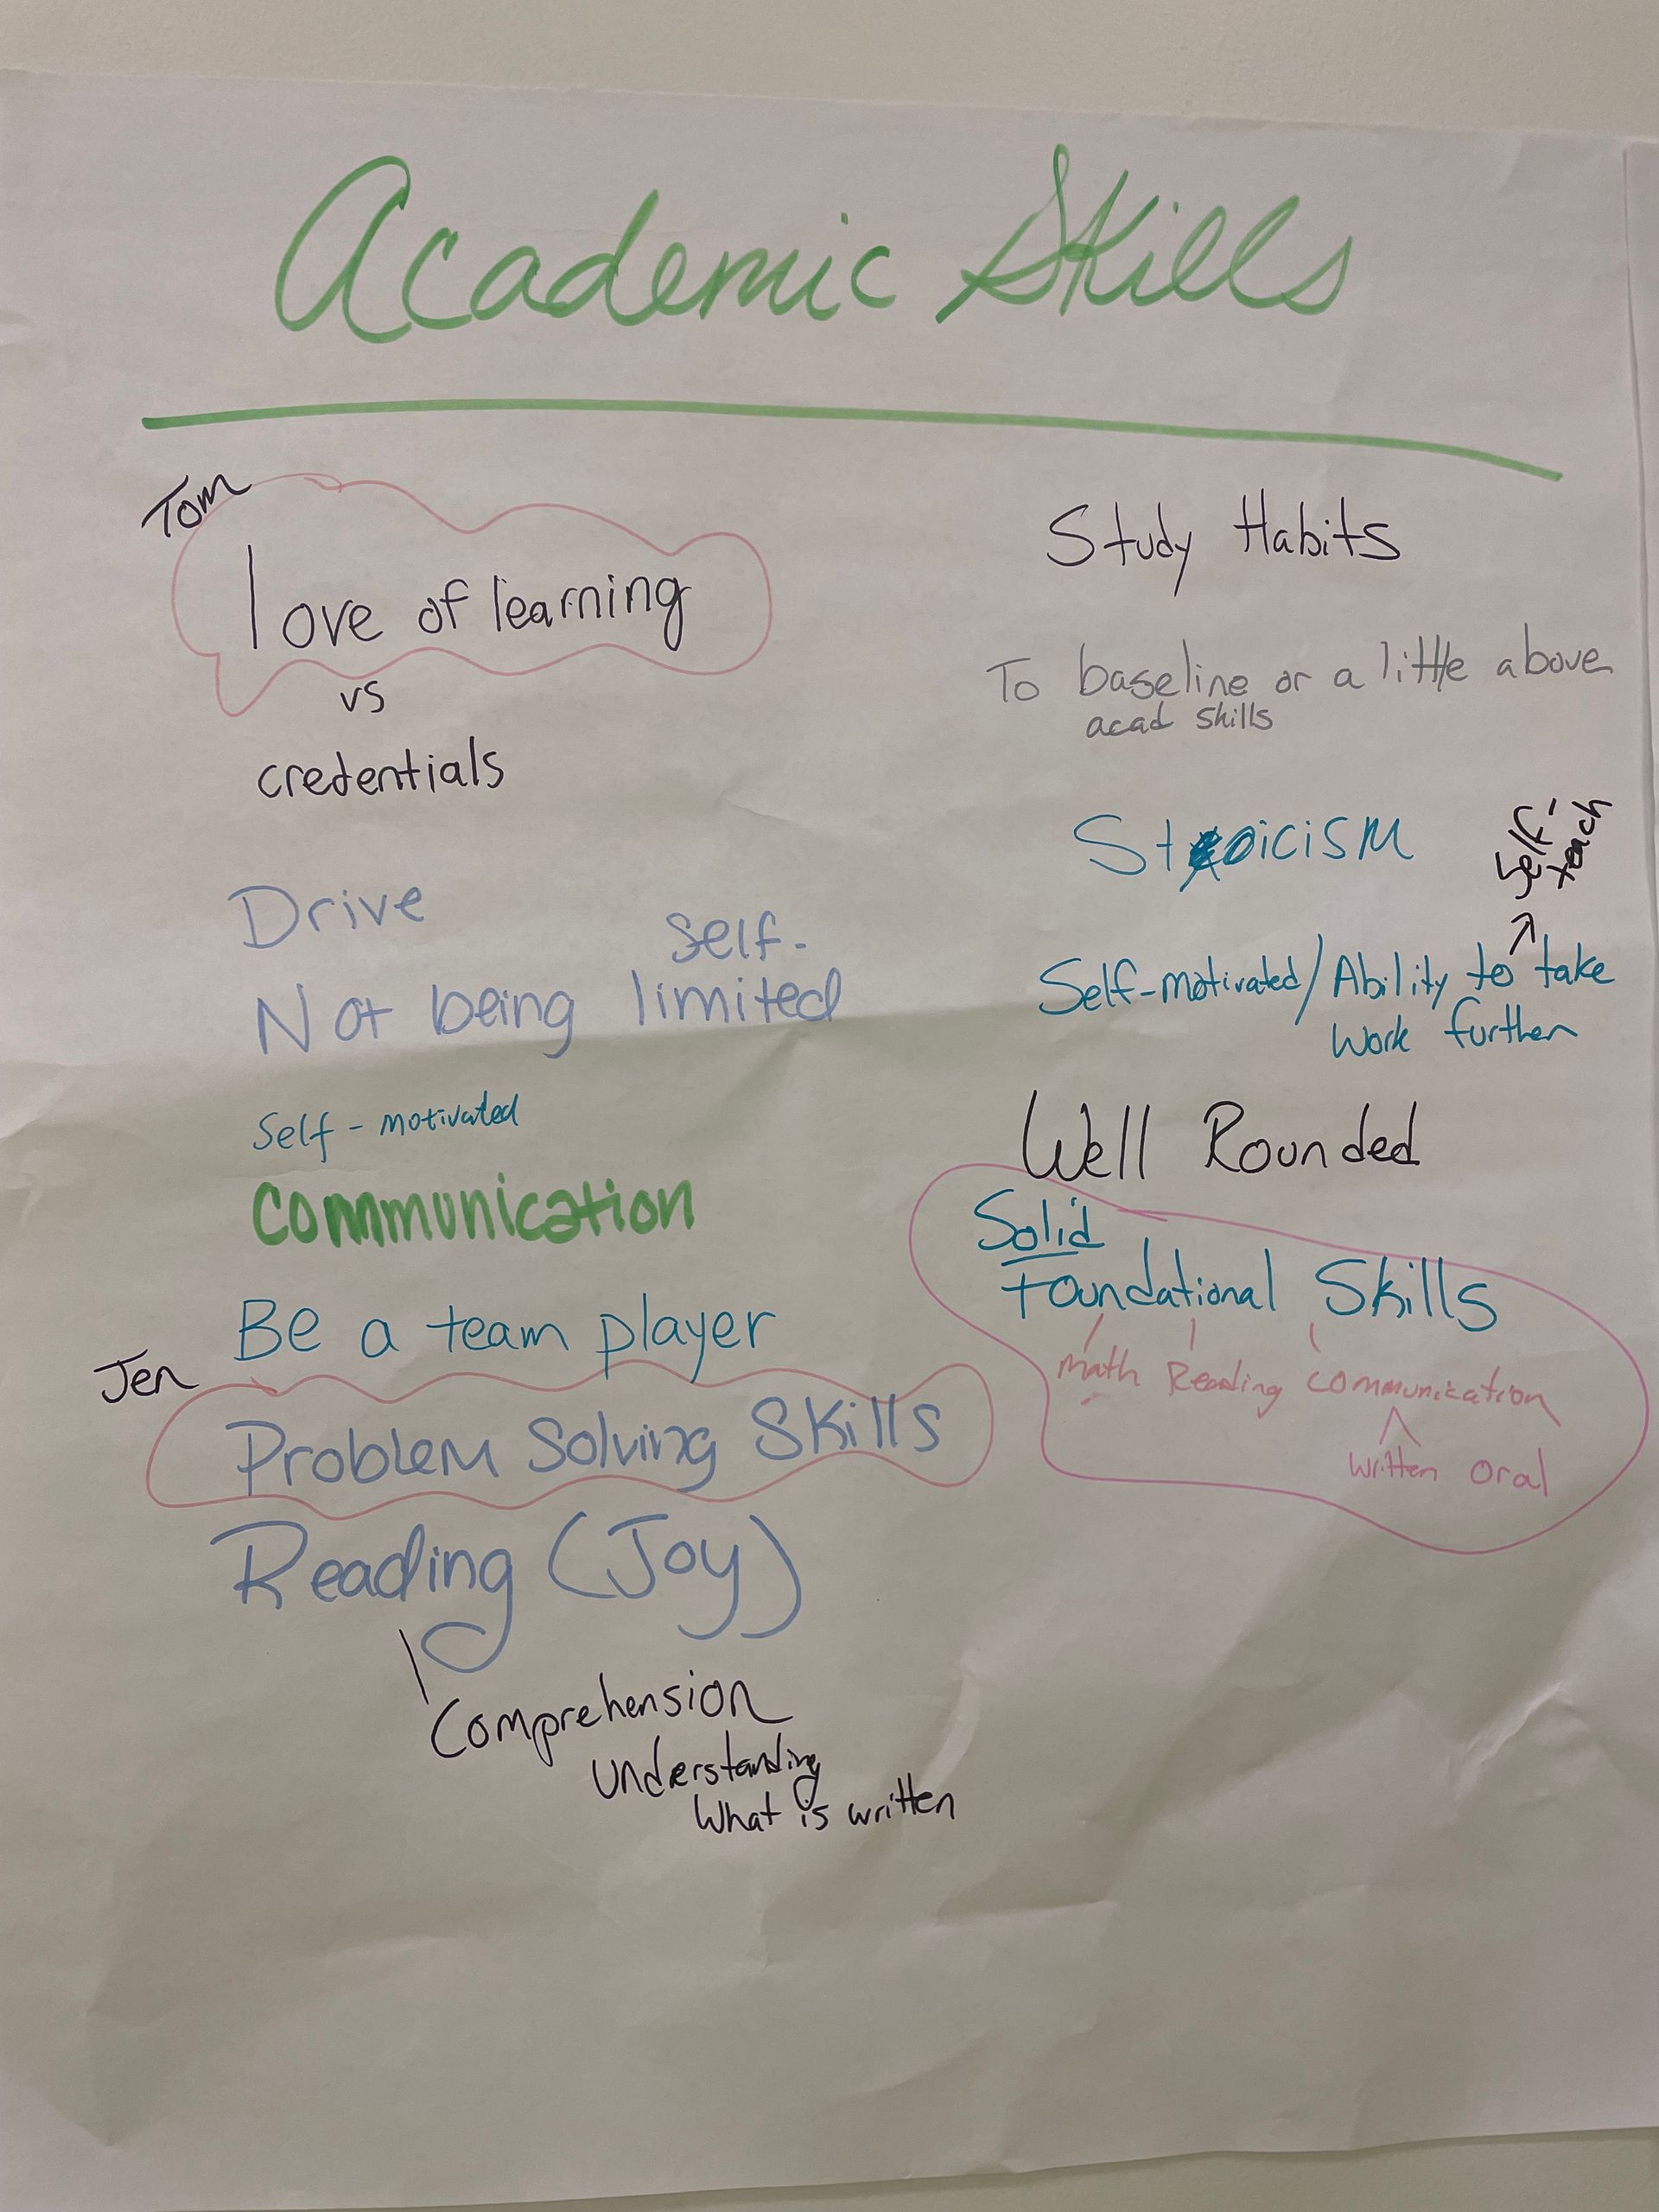 Academic Skills
Tom
love of learning
vs
credentials
Drive
Not being self-limited
Self-motivated
Communication
Be a team player
Jen
Problem Solving Skills
Reading (Joy)
Comprehension
understanding
what is written
Study Habits
To baseline or a little above
acad skills
Stoicism
Self-
teach
Self-motivated/Ability to take
work further
Well Rounded
Solid
Foundational Skills
math Reading communication
written oral